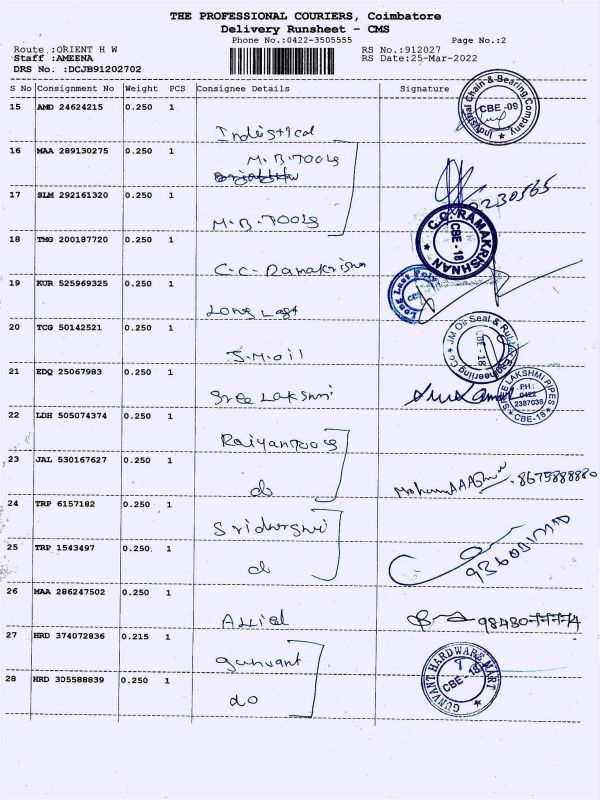 THE PROFESSIONAL COURIERS, Coimbatore
Delivery Runsheet - CMS
Phone No.:0422-3505555 Page No.:2
Route :ORIENT H W RS No.:912027
Staff :AMEENA RS Date:25-Mar-2022
DRS No. :DCJB91202702
S No Consignment No Weight PCS Consignee Details Signature
15 AMD 24624215 0.250 1
Industrial Chain & Bearing Company CBE-09
16 MAA 289130275 0.250 1
M.B.TOOLS
17 SLM 292161320 0.250 1
M.B.TOOLS
C.C. RAMAKRISHNAN CBE-18
18 TMG 200187720 0.250 1
C.C. Ramakrishna
19 KUR 525969325 0.250 1
Long Last
20 TCG 50142521 0.250 1
J.M.oil
JM Oil Seal & CBE-18
21 EDQ 25067983 0.250 1
Sree Lakshmi
SREE LAKSHMI PIPES PH: 0422 2387038 CBE-18
22 LDH 505074374 0.250 1
23 JAL 530167627 0.250 1
do 8675888880
24 TRP 6157182 0.250 1
25 TRP 1543497 0.250 1
do
26 MAA 286247502 0.250 1
Allied
27 HRD 374072836 0.215 1
gunvant
GUNVANT HARDWARE MART CBE-18
28 HRD 305588839 0.250 1
do